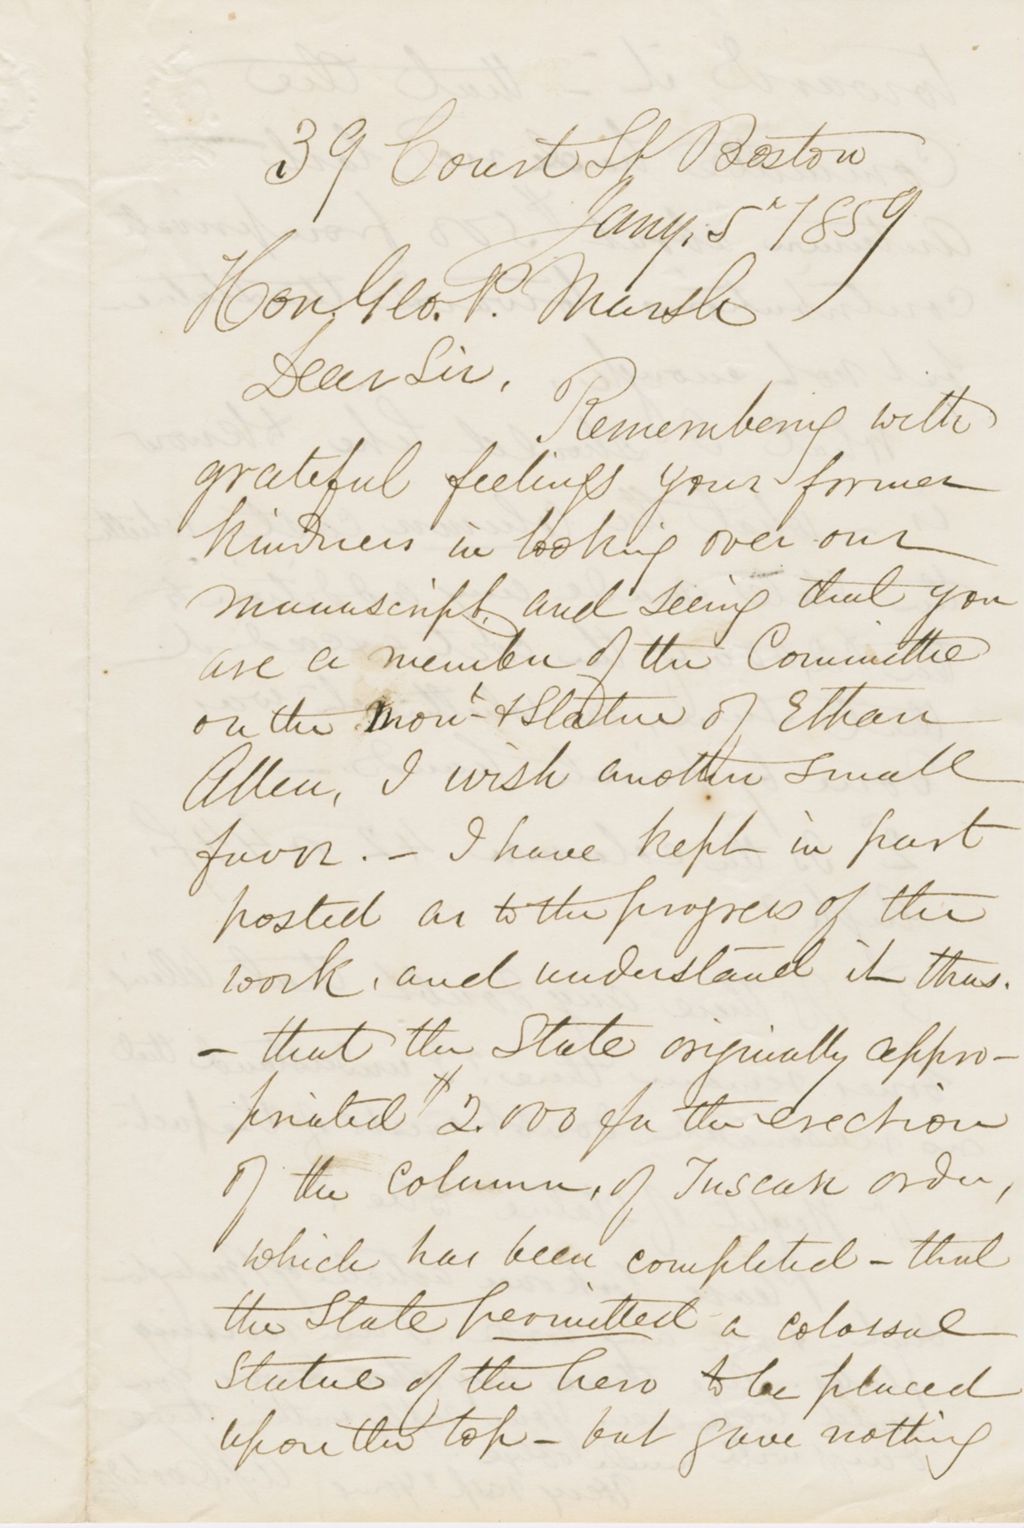 39 Court St Boston
Jany. 5th 1859
Hon. Geo. P. Marsh
Dear Sir,
Remembering with
grateful feelings your former
kindness in looking over our
manuscript, and seeing that you
are a member of the Committee
on the Mont & Statue of Ethan
Allen, I wish another small
favor. – I have kept in part
posted as to the progress of the
work, and understand it thus.
– that the State originally appro–
priated $2.000 for the erection
of the column, of Tuscan order,
which has been completed – that
the State permitted a colossal
Statue of the hero to be placed
upon the top – but gave nothing